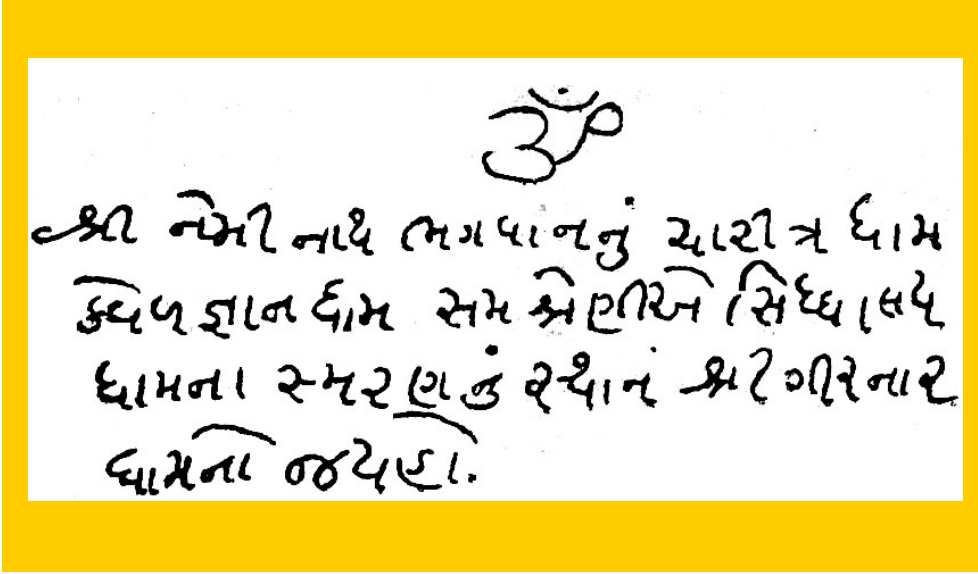 ૐ
શ્રી નેમીનાથ ભગવાનનું ચારીત્ર ધામ
કેવળજ્ઞાન ધામ સમશ્રેણીએ સિધ્ધાલય
ધામના સ્મરણનું સ્થાન શ્રી ગીરનાર
ધામનો જયહો.